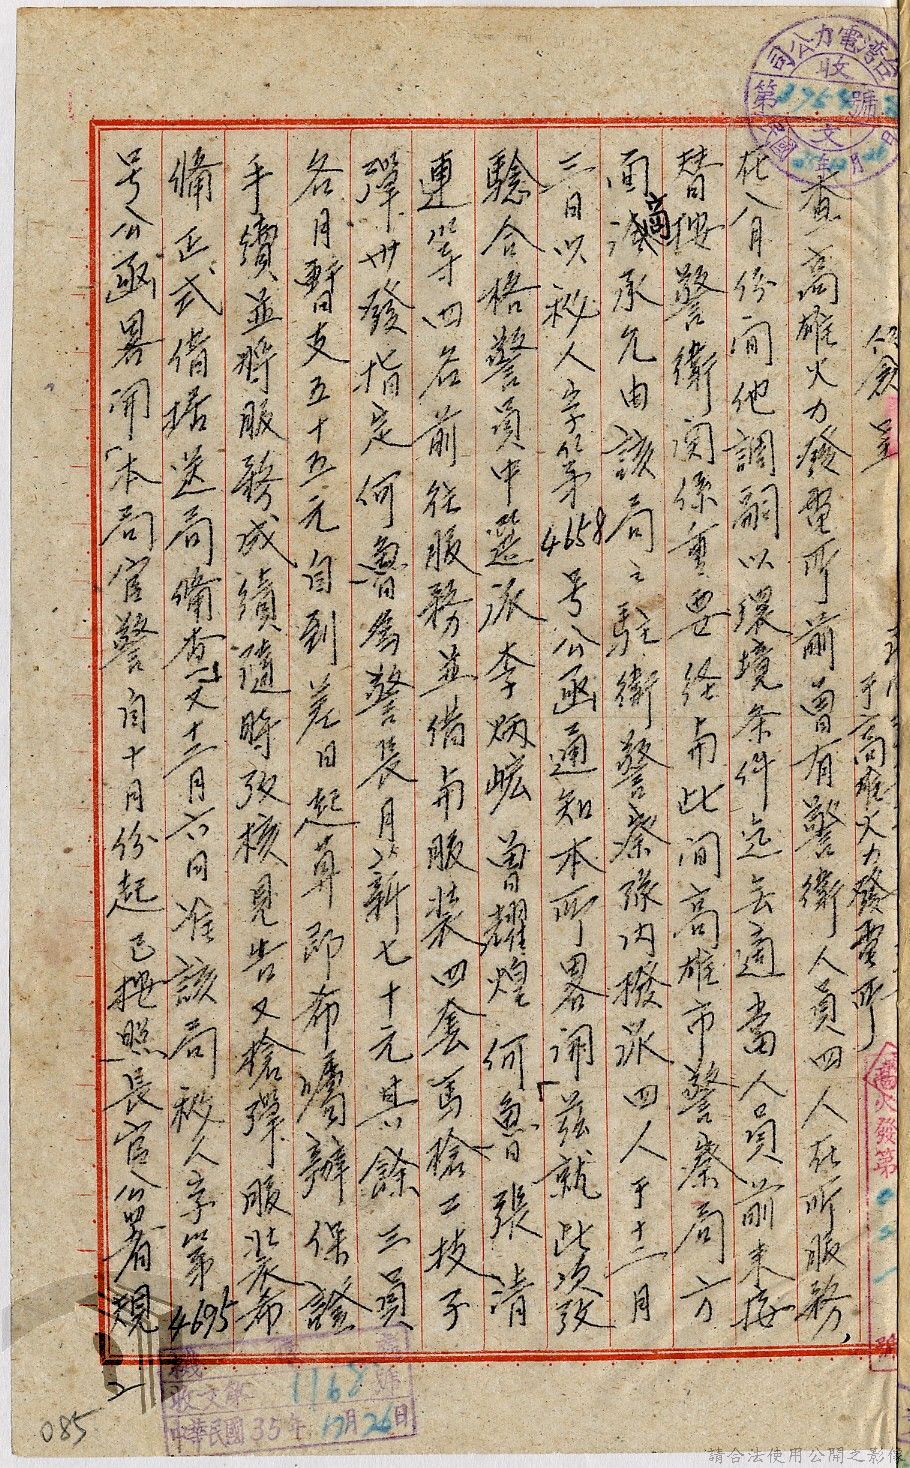 簽呈
于高雄火力發電所
查高雄火力發電所前曾有警衛人員四人在所服務,
在八月份間他調嗣以環境条件迄無適當人員前來接
替按警衛関係重要経与此間高雄市警察局方
面洽商承允由該局之駐衛警察隊内撥派四人于十二月
三日以秘人字第4658号公函通知本所畧開「茲就此次攷
驗合格警員中選派李炳宏曾耀煌何魯張清
連等四名前往服務並借与服裝四套馬槍二枝子
彈卅發指定何魯為警長月薪七十元其餘三員
各月暫支五十五元自到差日起算即希囑辦保證
手續並將服務成績隨時攷核見告又槍彈服裝希
備正式借据送局備查」又十二月六日准該局秘人字第4695
号公函畧開「本局官警自十月份起已按照長官公署規
台湾電力公司
收文
第 號
民國 年 月 日
高火發第 號
收文 第 1168 號
中華民國35年12月26日
2
085
請合法使用公開之影像